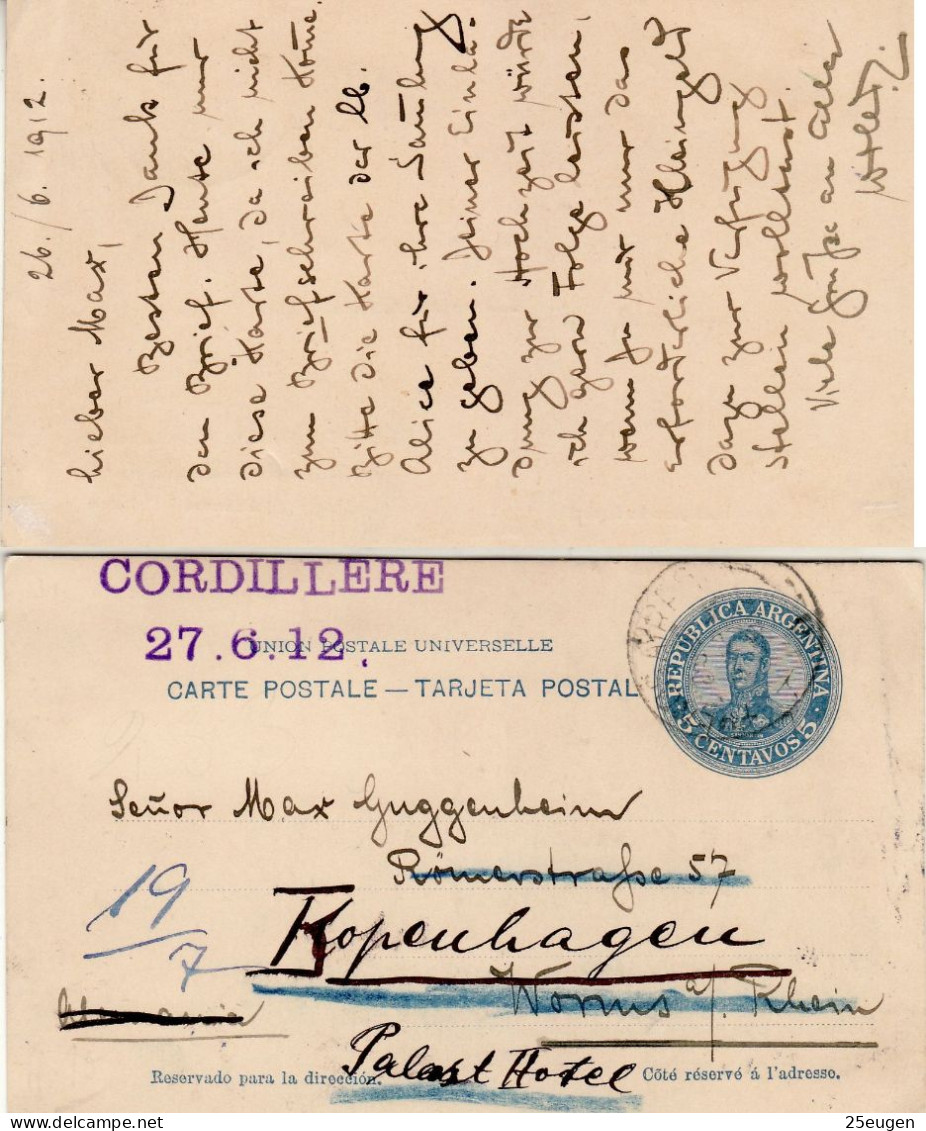 26./6. 1912.
Lieber Max,
Besten Dank für
den Brief. Heute nur
diese Karte, da ich nicht
zum Briefschreiben kome.
Bitte die Karte der lb.
Alice für ihre Samlung
zu geben. Deiner Einla-
dung zur Hochzeit würde
ich gern Folge leisten,
wenn Du mir nur das
erforderliche Kleingeld
dazu zur Verfügung
stellen wolltest.
Viele Grüße an alle
CORDILLERE
27.6.12.
UNION POSTALE UNIVERSELLE
CARTE POSTALE — TARJETA POSTAL
REPUBLICA ARGENTINA
5 CENTAVOS 5
Señor Max Guggenheim
Römerstraße 57
19/7
Kopenhagen
Worms a/. Rhein
Alemania
Palast Hotel
Reservado para la dirección.
Côté réservé á l'adresse.
25eugen